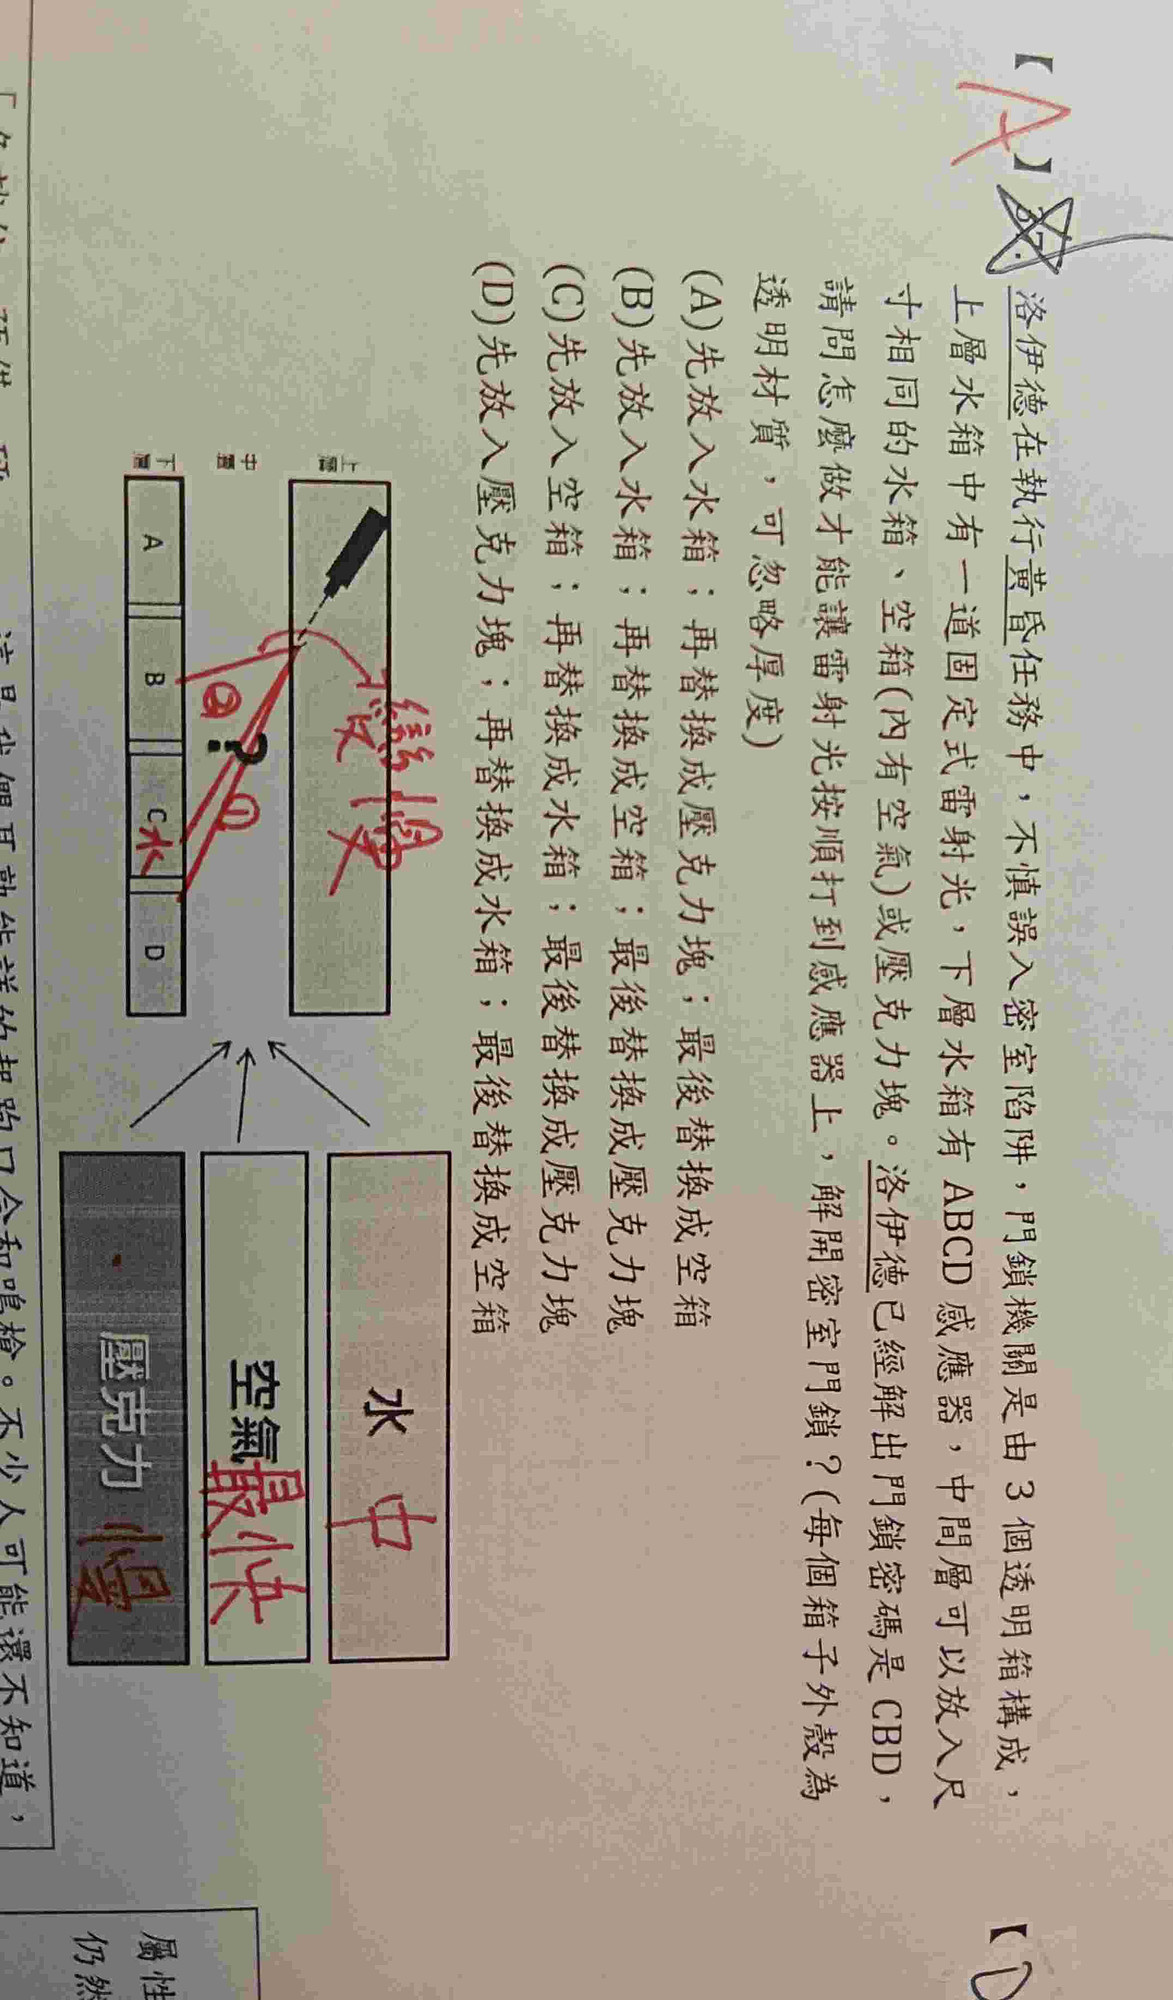 【A】37.洛伊德在執行黃昏任務中，不慎誤入密室陷阱，門鎖機關是由 3 個透明箱構成，
上層水箱中有一道固定式雷射光，下層水箱有 ABCD 感應器，中間層可以放入尺
寸相同的水箱、空箱(內有空氣)或壓克力塊。洛伊德已經解出門鎖密碼是 CBD，
請問怎麼做才能讓雷射光按順打到感應器上，解開密室門鎖？(每個箱子外殼為
透明材質，可忽略厚度)
(A)先放入水箱；再替換成壓克力塊；最後替換成空箱
(B)先放入水箱；再替換成空箱；最後替換成壓克力塊
(C)先放入空箱；再替換成水箱；最後替換成壓克力塊
(D)先放入壓克力塊；再替換成水箱；最後替換成空箱
上層
中層
下層
?
②
①
變慢
A
B
C
水
D
水 中
空氣 最快
壓克力 慢
【D
屬性
仍然
不少人可能還不知道，